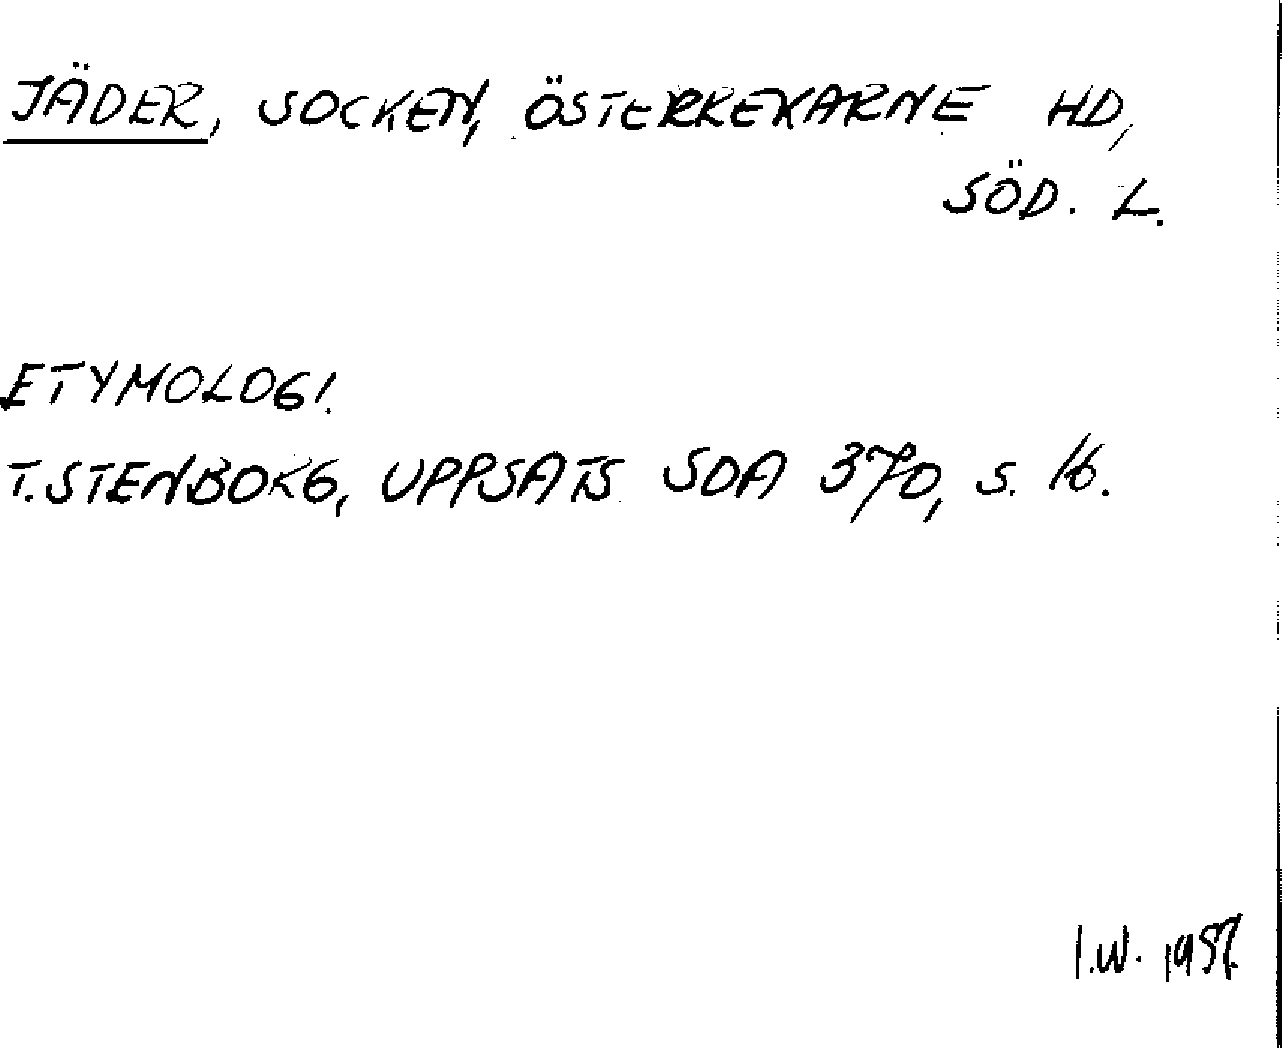 JÄDER, SOCKEN, ÖSTERREKARNE HD,
SÖD. L.
ETYMOLOGI.
T. STENBORG, UPPSATS SOA 370, S. 16.
I.W. 1957.